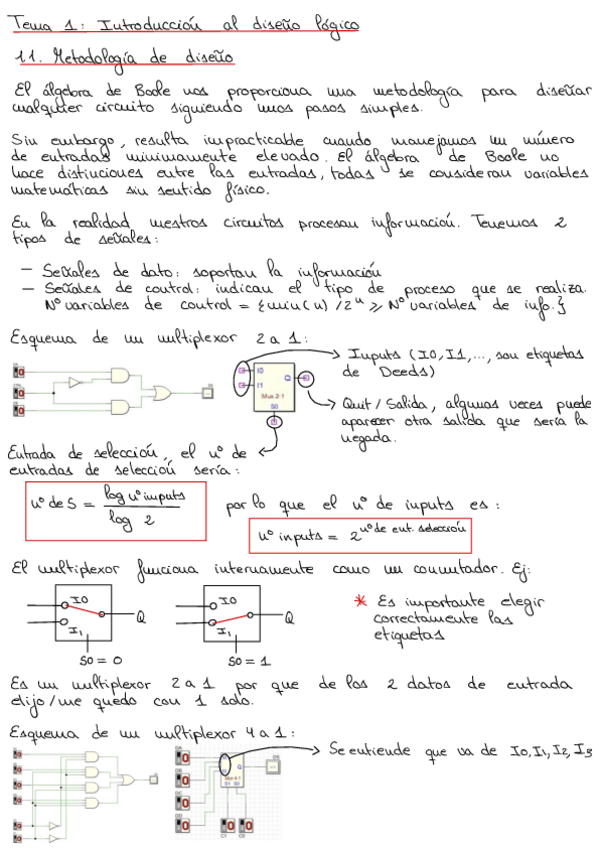 Tema 1: Introducción al diseño lógico
1.1. Metodología de diseño
El álgebra de Boole nos proporciona una metodología para diseñar
cualquier circuito siguiendo unos pasos simples.
Sin embargo, resulta impracticable cuando manejamos un número
de entradas minimamente elevado. El álgebra de Boole no
hace distinciones entre las entradas, todas se consideran variables
matemáticas sin sentido físico.
En la realidad nuestros circuitos procesan información. Tenemos 2
tipos de señales:
– Señales de dato: soportan la información
– Señales de control: indican el tipo de proceso que se realiza.
Nº variables de control = {min(n) / 2ⁿ ⩾ Nº variables de info.}
Esquema de un multiplexor 2 a 1:
Inputs (I0, I1, ..., son etiquetas
de Deeds)
I0
I1
Q
Mux 2-1
S0
Quit / Salida, algunas veces puede
aparecer otra salida que sería la
negada.
Entrada de selección, el nº de
entradas de selección sería:
nº de S = log nº inputs / log 2
por lo que el nº de inputs es:
nº inputs = 2^nº de ent. selección
El multiplexor funciona internamente como un conmutador. Ej:
I0
I1
Q
S0 = 0
I0
I1
Q
S0 = 1
* Es importante elegir
correctamente las
etiquetas
Es un multiplexor 2 a 1 por que de los 2 datos de entrada
elijo/me quedo con 1 solo.
Esquema de un multiplexor 4 a 1:
Se entiende que va de I0, I1, I2, I3
Mux 4-1
S1 S0